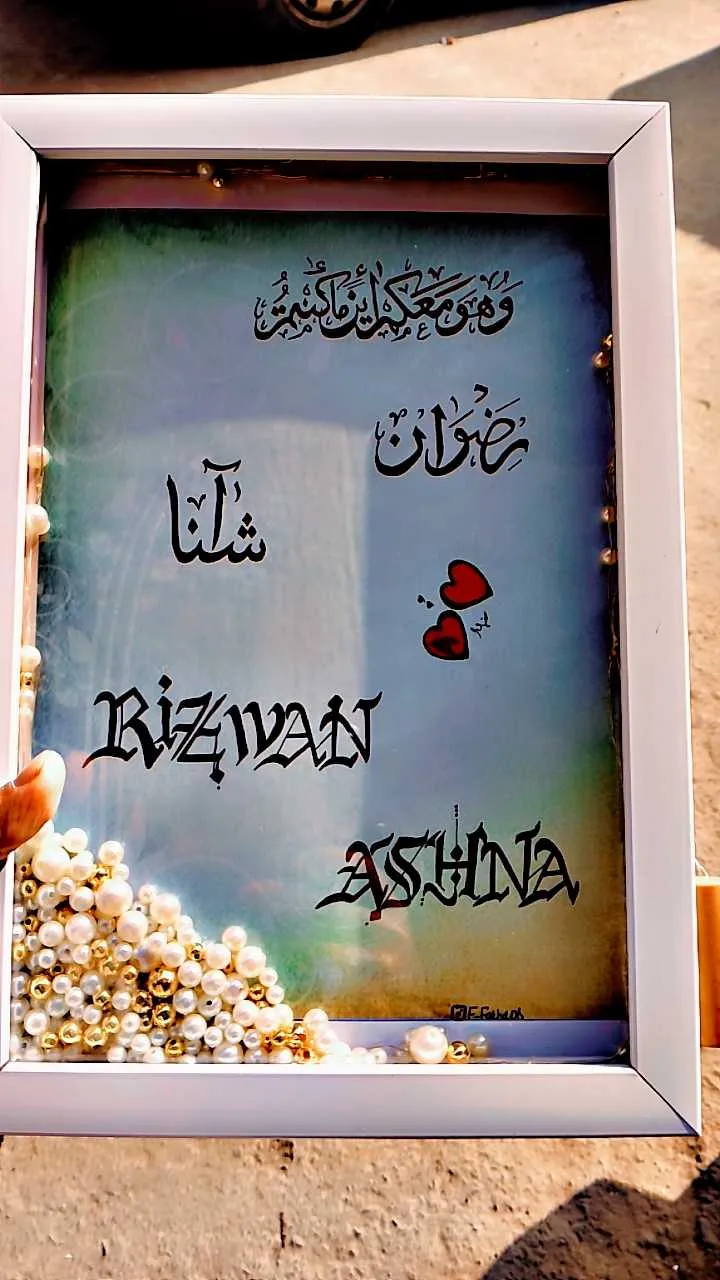 وَهُوَ مَعَكُمْ أَيْنَ مَا كُنْتُمْ
رِضْوَان
شآنا
RiZWAN
ASHNA